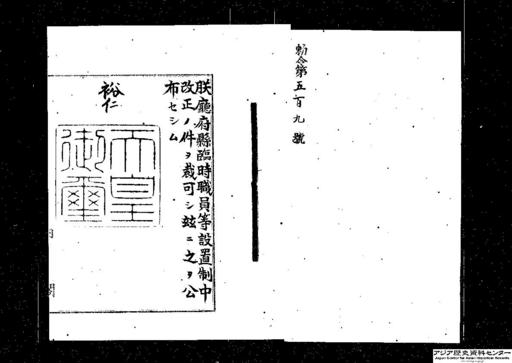 勅令第五百九號
朕廳府縣臨時職員等設置制中
改正ノ件ヲ裁可シ玆ニ之ヲ公
布セシム
裕仁
天皇
御璽
内
閣
アジア歴史資料センター
Japan Center for Asian Historical Records